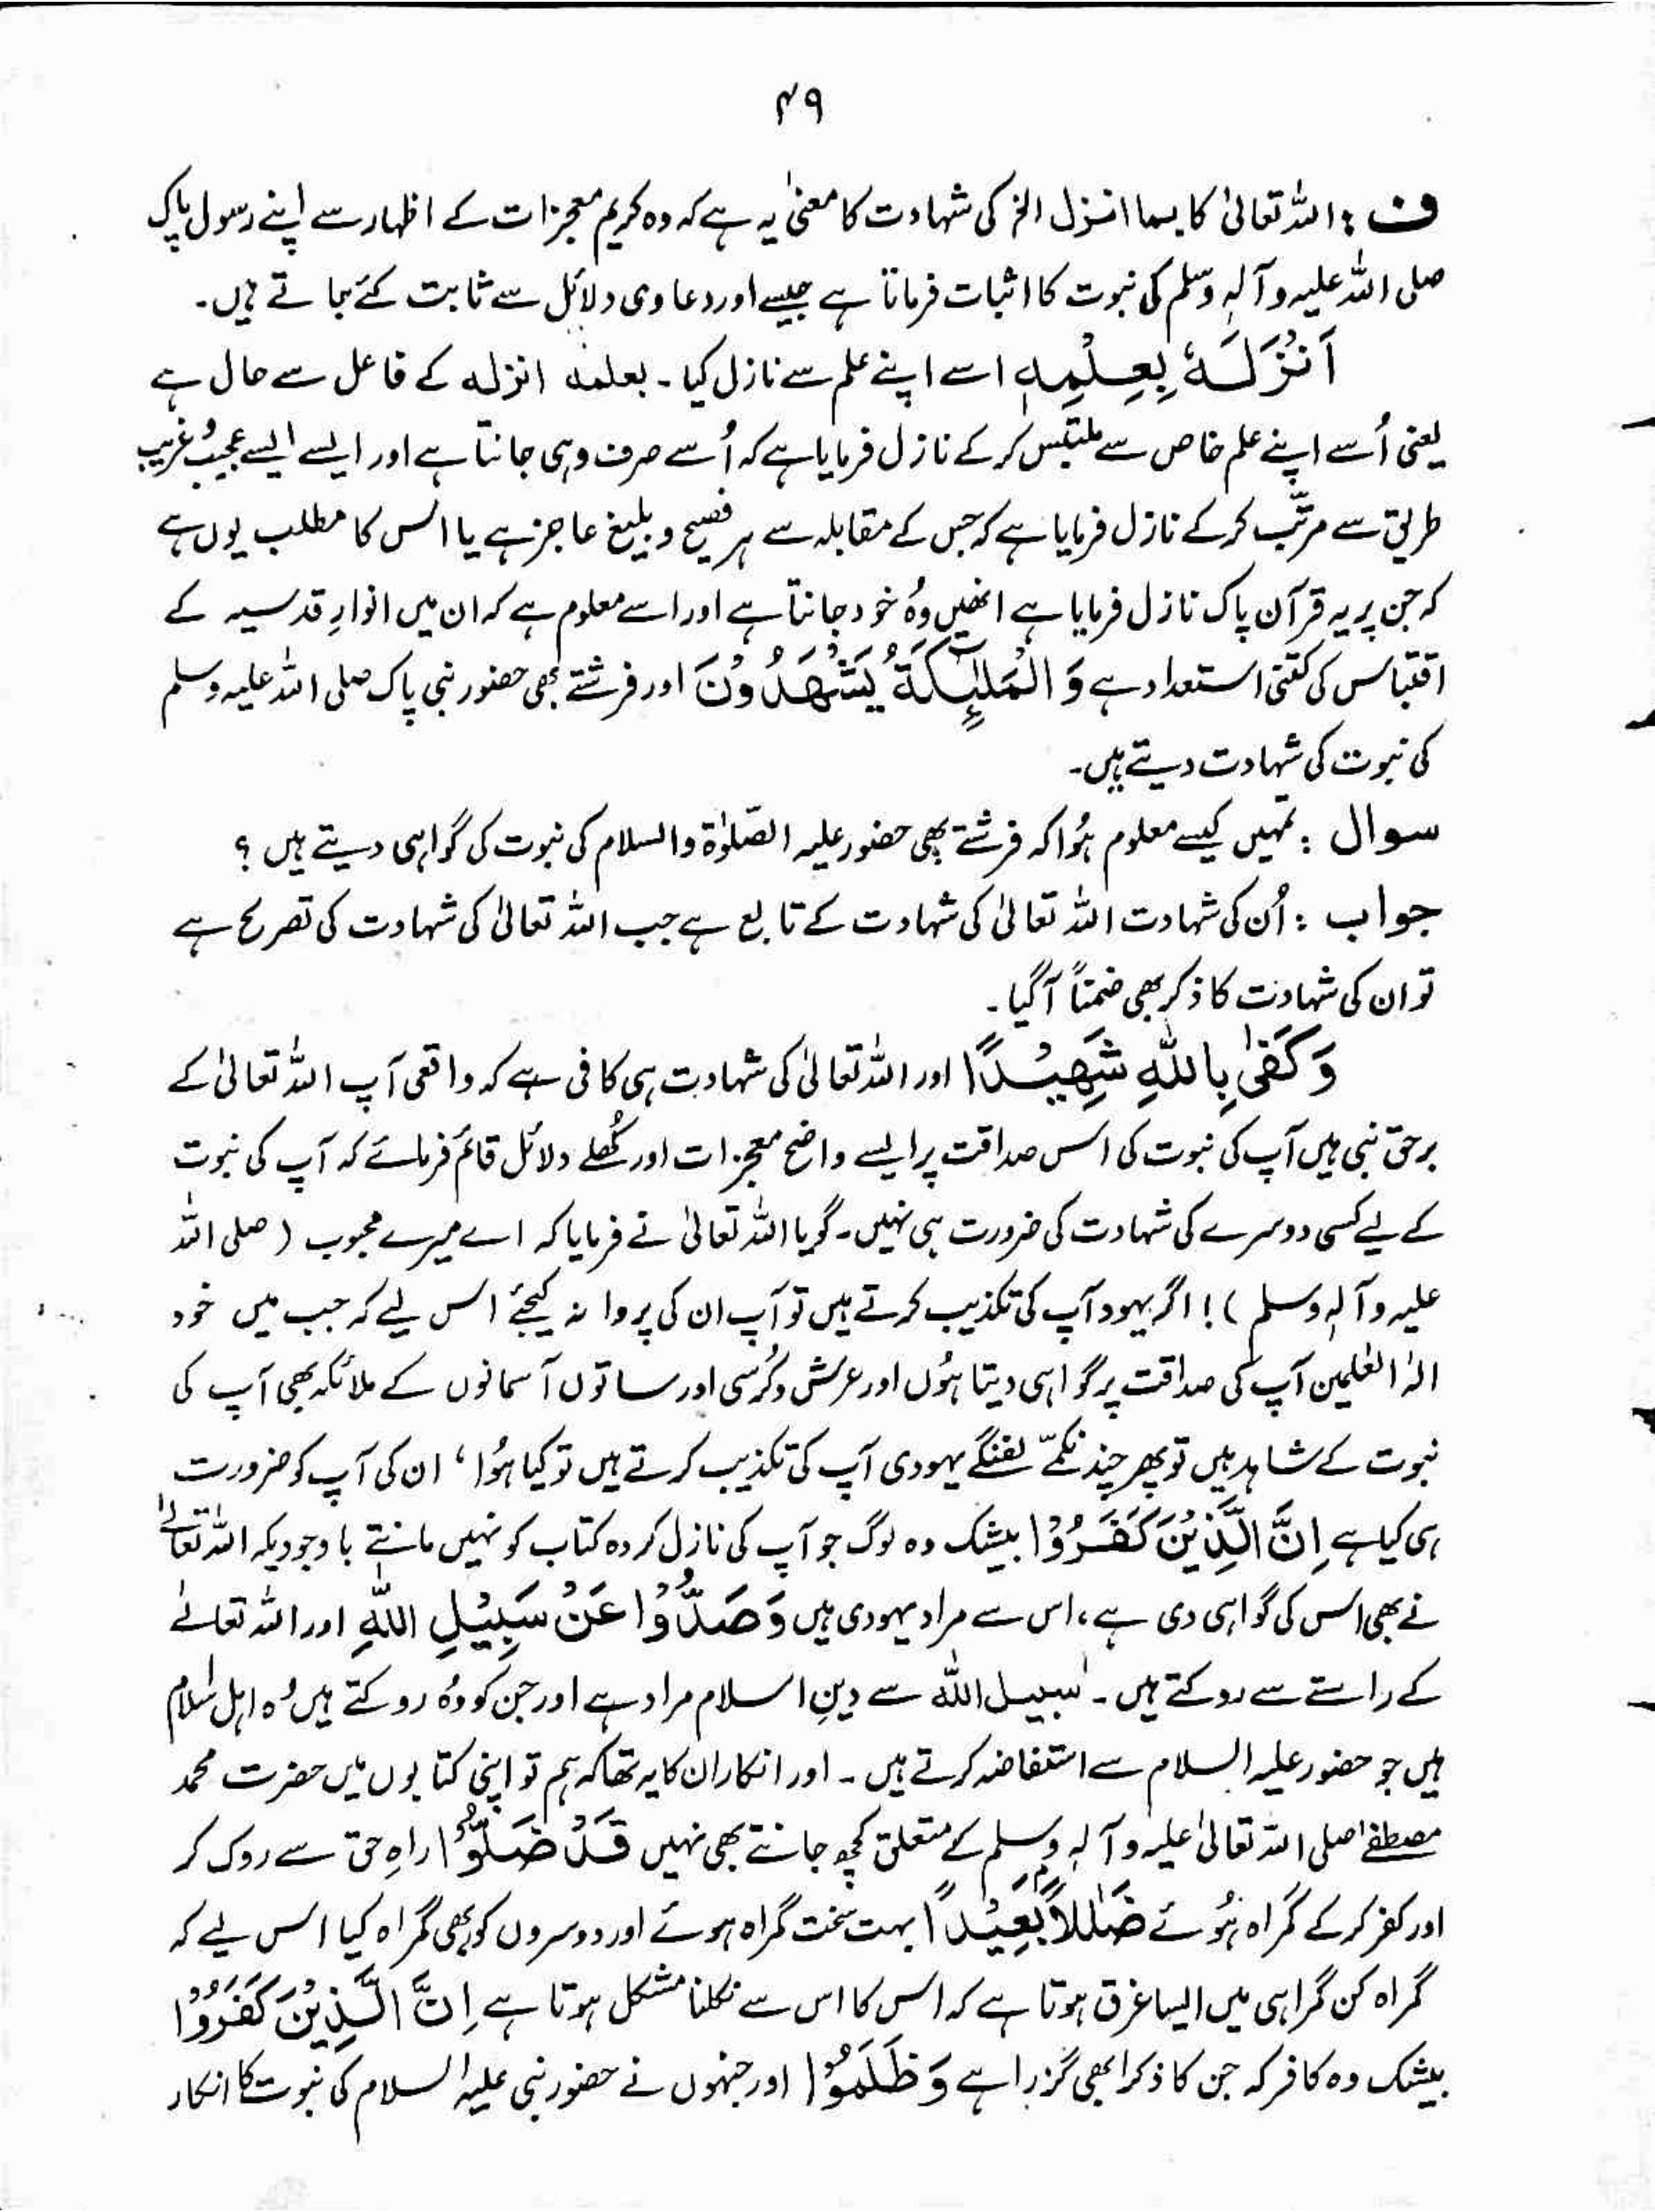 ۴۹
ف : اللہ تعالیٰ کا بما انزل الخ کی شہادت کا معنیٰ یہ ہے کہ وہ کریم معجزات کے اظہار سے اپنے رسول پاک
صلی اللہ علیہ وآلہٖ وسلم کی نبوت کا اثبات فرماتا ہے جیسے اور دعاوی دلائل سے ثابت کئے جاتے ہیں۔
اَنْزَلَهٗ بِعِلْمِهٖ اسے اپنے علم سے نازل کیا۔ بعلمه انزله کے فاعل سے حال ہے
یعنی اُسے اپنے علم خاص سے ملتبس کر کے نازل فرمایا ہے کہ اُسے صرف وہی جانتا ہے اور ایسے ایسے عجیب و غریب
طریق سے مرتّب کرکے نازل فرمایا ہے کہ جس کے مقابلہ سے ہر فصیح و بلیغ عاجز ہے یا اس کا مطلب یوں ہے
کہ جن پر یہ قرآن پاک نازل فرمایا ہے انھیں وُہ خود جانتا ہے اور اسے معلوم ہے کہ ان میں انوارِ قدسیہ کے
اقتباس کی کتنی استعداد ہے وَ الْمَلٰٓئِكَةُ يَشْهَدُوْنَ اور فرشتے بھی حضور نبی پاک صلی اللہ علیہ وسلم
کی نبوت کی شہادت دیتے ہیں۔
سوال : تمہیں کیسے معلوم ہُوا کہ فرشتے بھی حضور علیہ الصّلوٰۃ والسلام کی نبوت کی گواہی دیتے ہیں ؟
جواب : اُن کی شہادت اللہ تعالیٰ کی شہادت کے تابع ہے جب اللہ تعالیٰ کی شہادت کی تصریح ہے
تو ان کی شہادت کا ذکر بھی ضمناً آگیا۔
وَ كَفٰى بِاللّٰهِ شَهِيْدًا اور اللہ تعالیٰ کی شہادت ہی کافی ہے کہ واقعی آپ اللہ تعالیٰ کے
برحق نبی ہیں آپ کی نبوت کی اس صداقت پر ایسے واضح معجزات اور کُھلے دلائل قائم فرمائے کہ آپ کی نبوت
کے لیے کسی دوسرے کی شہادت کی ضرورت ہی نہیں۔ گویا اللہ تعالیٰ نے فرمایا کہ اے میرے محبوب (صلی اللہ
علیہ وآلہٖ وسلم )! اگر یہود آپ کی تکذیب کرتے ہیں تو آپ ان کی پروا نہ کیجئے اس لیے کہ جب میں خود
الٰہ العٰلمین آپ کی صداقت پر گواہی دیتا ہُوں اور عرش و کُرسی اور ساتوں آسمانوں کے ملائکہ بھی آپ کی
نبوت کے شاہد ہیں تو پھر چند نکمّے لفنگے یہودی آپ کی تکذیب کرتے ہیں تو کیا ہُوا ، ان کی آپ کو ضرورت
ہی کیا ہے اِنَّ الَّذِيْنَ كَفَرُوْا بیشک وہ لوگ جو آپ کی نازل کردہ کتاب کو نہیں مانتے باوجودیکہ اللہ تعالےٰ
نے بھی اس کی گواہی دی ہے ، اس سے مراد یہودی ہیں وَ صَدُّوْا عَنْ سَبِيْلِ اللّٰهِ اور اللہ تعالےٰ
کے راستے سے روکتے ہیں۔ سبیل اللّٰہ سے دینِ اسلام مراد ہے اور جن کو وُہ روکتے ہیں وُہ اہل اسلام
ہیں جو حضور علیہ السلام سے استفاضہ کرتے ہیں۔ اور انکار ان کا یہ تھا کہ ہم تو اپنی کتابوں میں حضرت محمد
مصطفےٰ صلی اللہ تعالیٰ علیہ وآلہٖ وسلم کے متعلق کچھ جانتے بھی نہیں قَدْ ضَلُّوْا راہِ حق سے روک کر
اور کفر کر کے گمراہ ہُوئے ضَلٰلًاۢ بَعِيْدًا بہت سخت گمراہ ہوئے اور دوسروں کو بھی گمراہ کیا اس لیے کہ
گمراہ کن گمراہی میں ایسا غرق ہوتا ہے کہ اس کا اس سے نکلنا مشکل ہوتا ہے اِنَّ الَّذِيْنَ كَفَرُوْا
بیشک وہ کافر کہ جن کا ذکر ابھی گزرا ہے وَ ظَلَمُوْا اور جنہوں نے حضور نبی علیہ السلام کی نبوت کا انکار